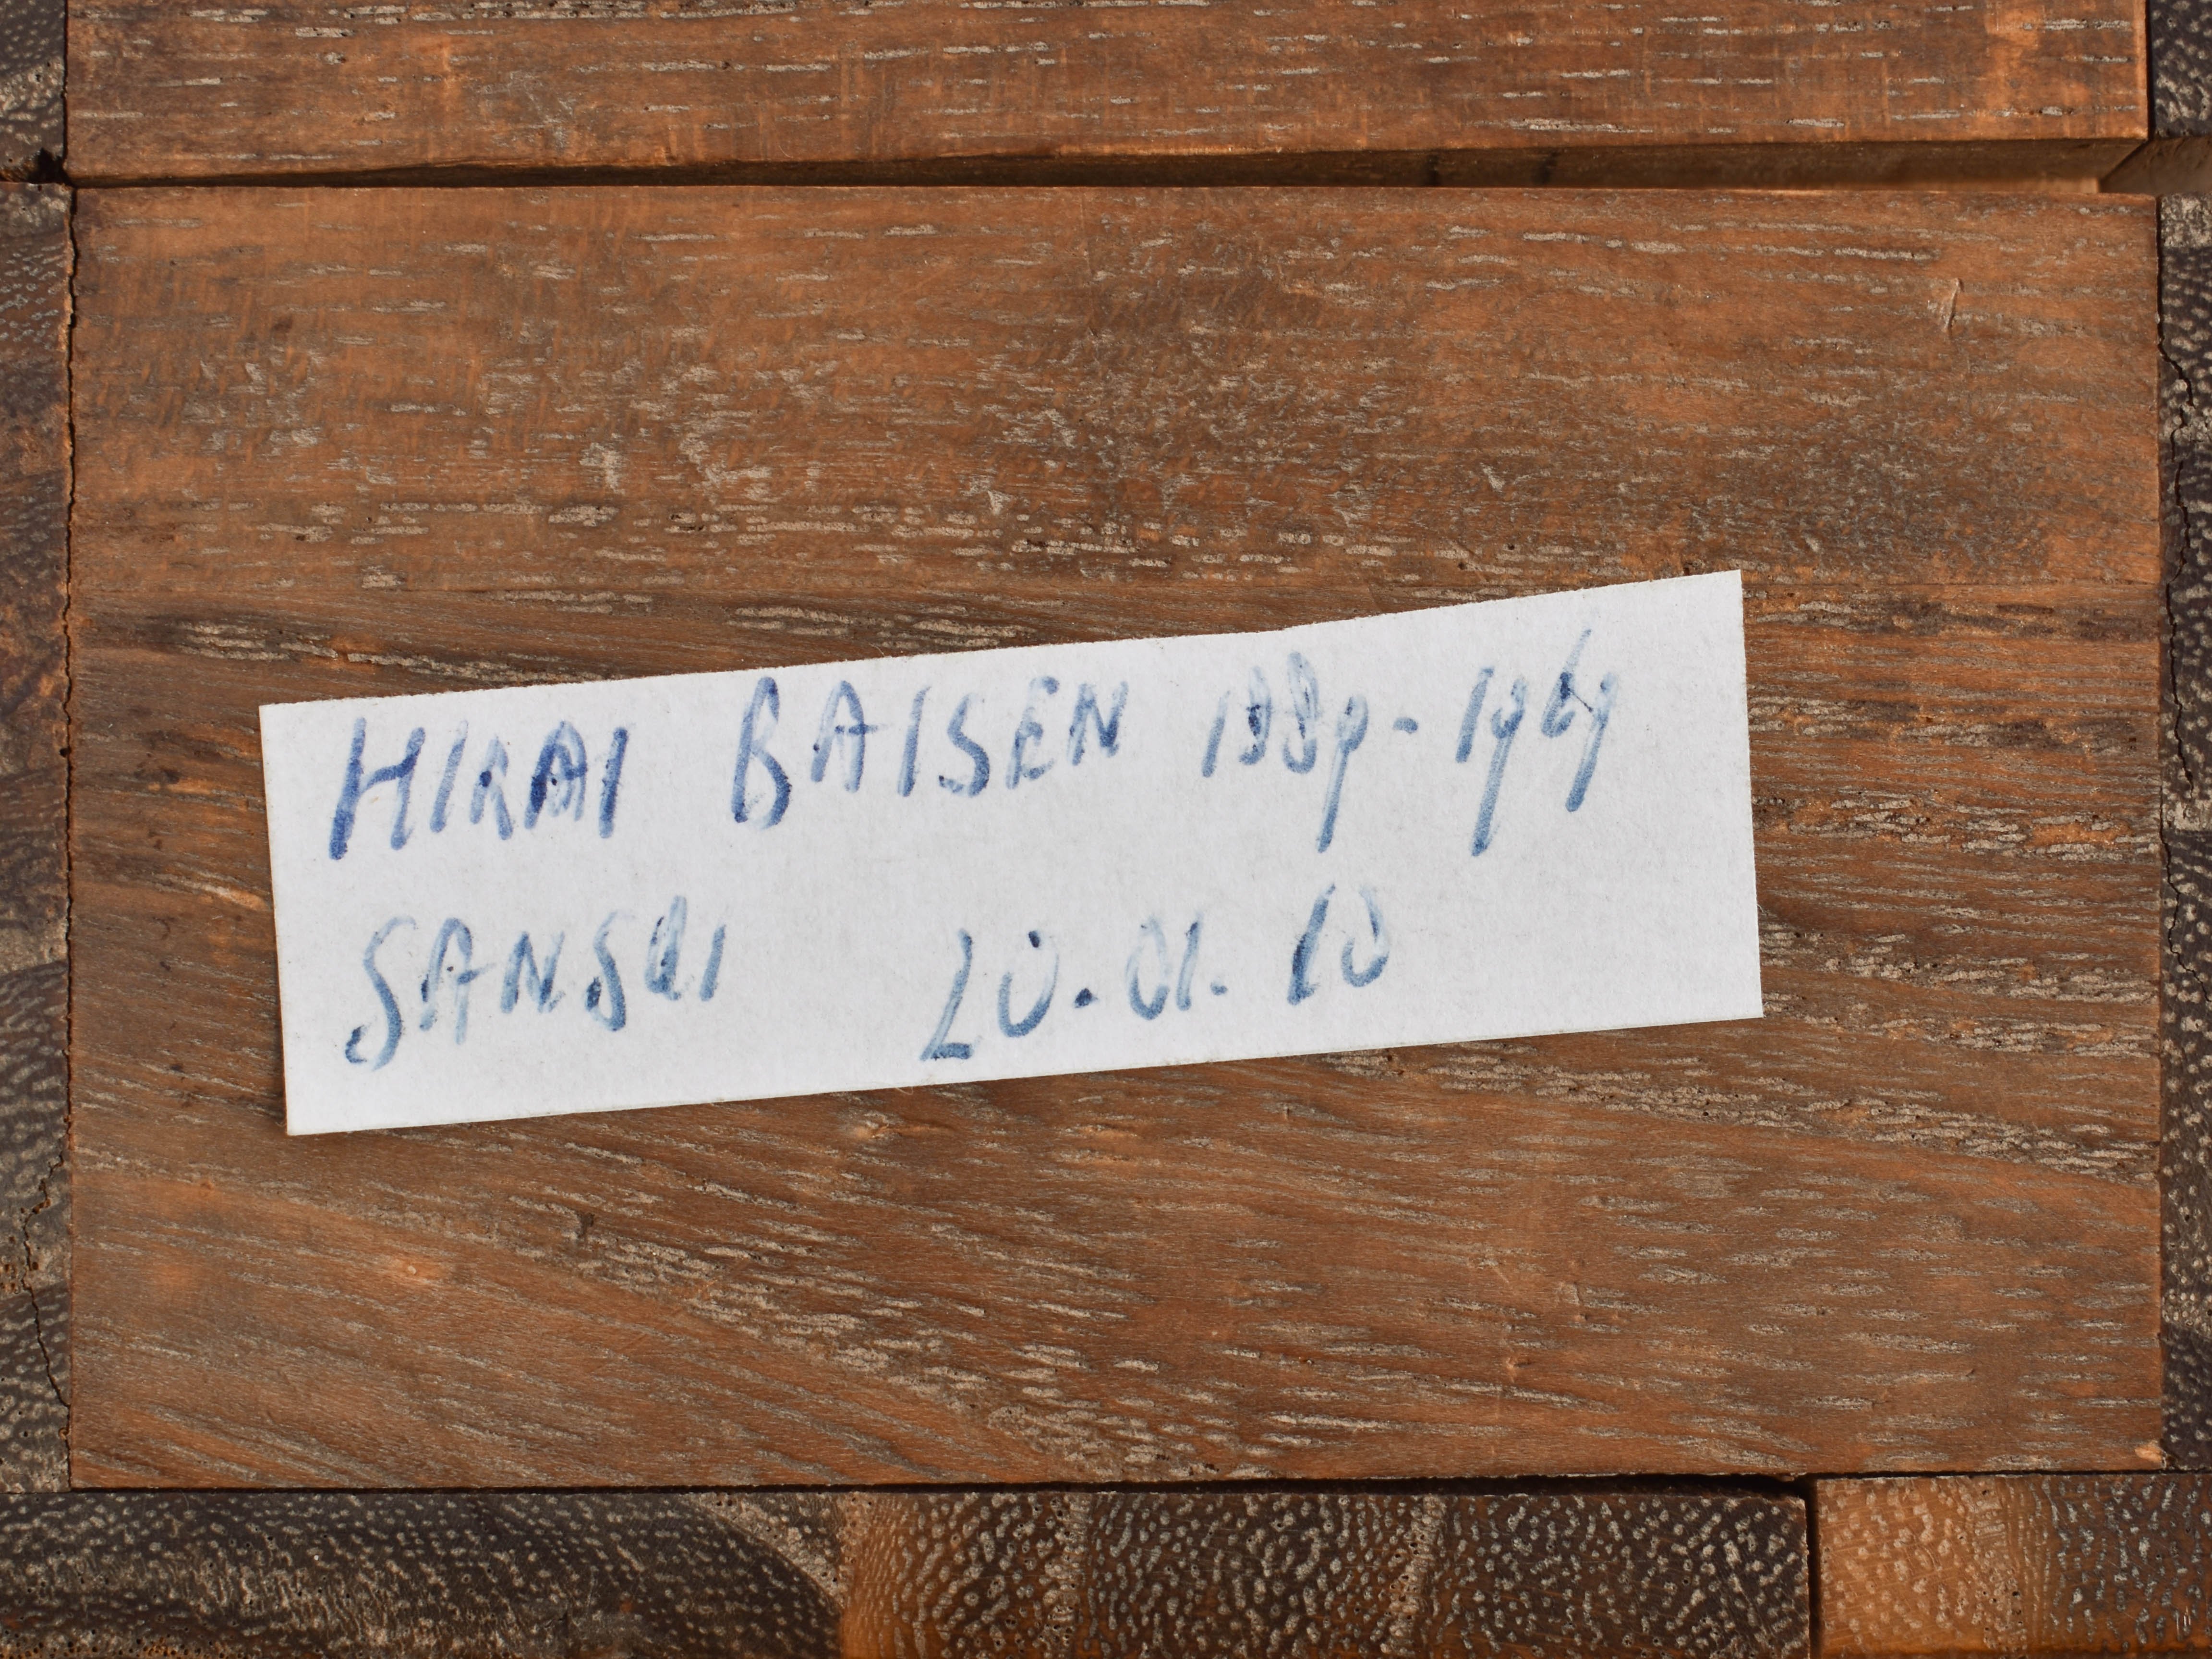 HIRAI BAISEN 1889-1969
SANSUI 20.01.10